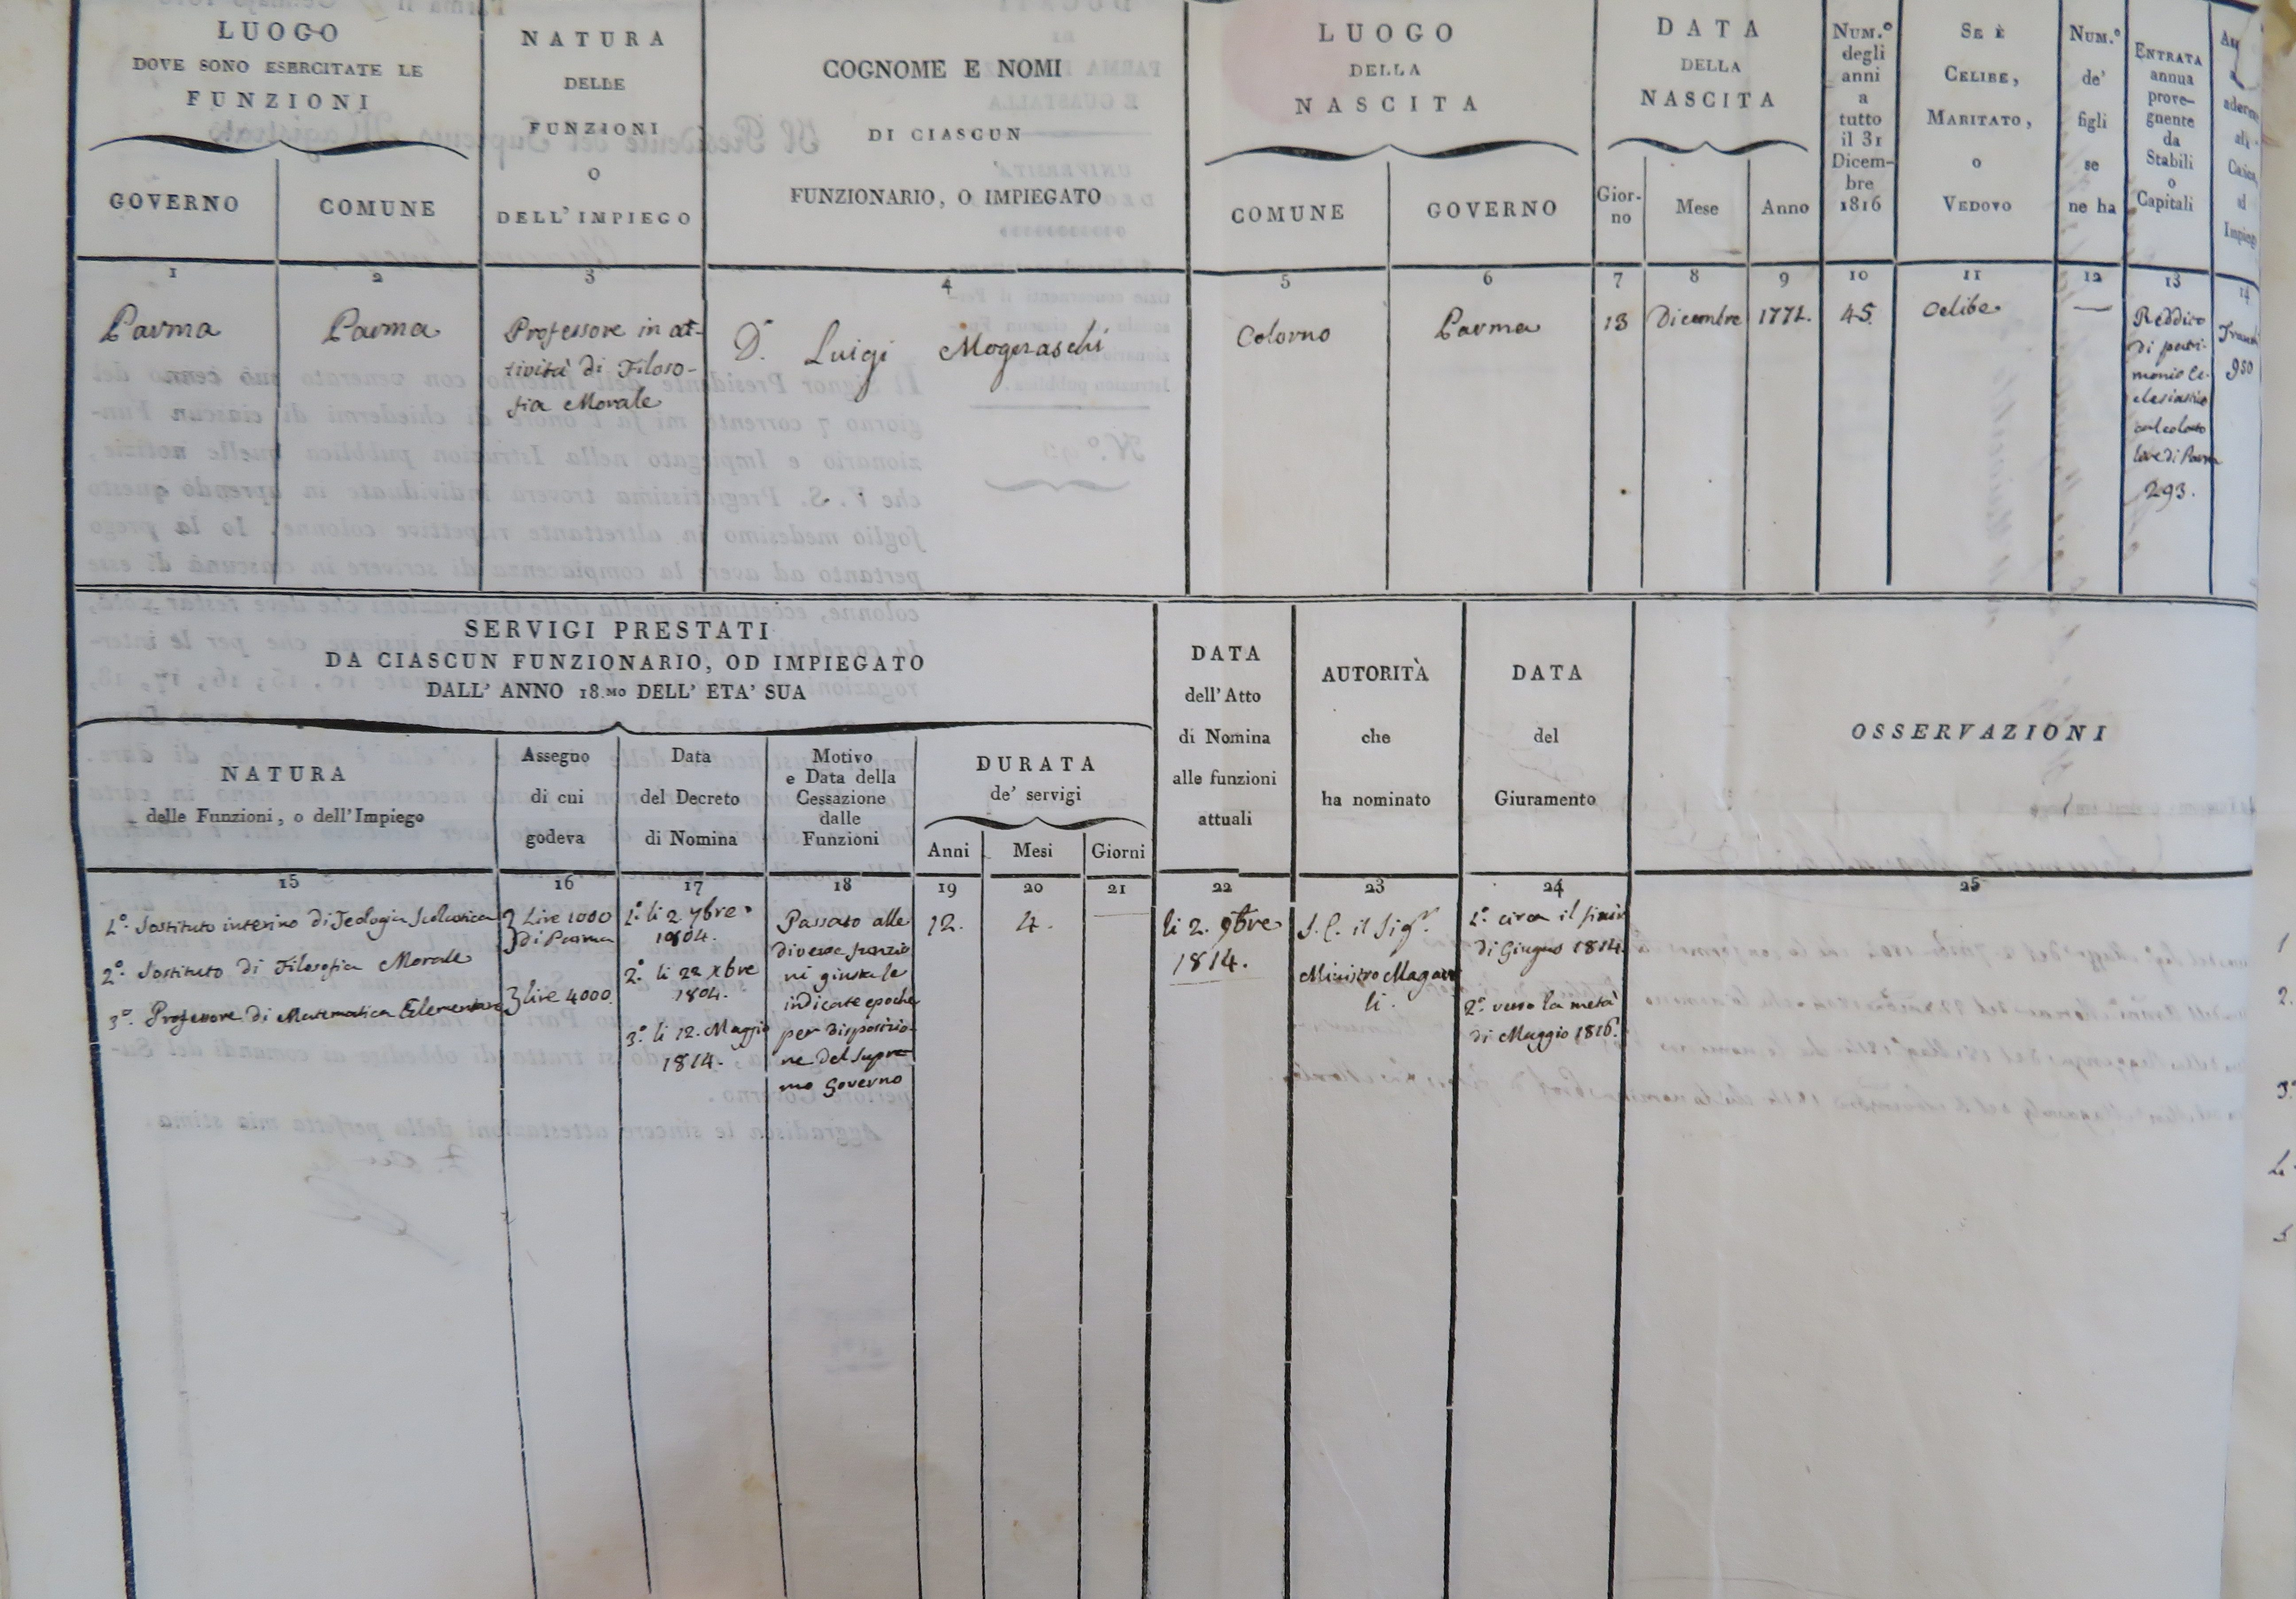 LUOGO
DOVE SONO ESERCITATE LE
FUNZIONI
GOVERNO
COMUNE
NATURA
DELLE
FUNZIONI
O
DELL' IMPIEGO
COGNOME E NOMI
DI CIASCUN
FUNZIONARIO, O IMPIEGATO
LUOGO
DELLA
NASCITA
COMUNE
GOVERNO
DATA
DELLA
NASCITA
Gior-
no
Mese
Anno
NUM.º
degli
anni
a
tutto
il 31
Dicem-
bre
1816
SE È
CELIBE,
MARITATO,
O
VEDOVO
NUM.º
de'
figli
se
ne ha
ENTRATA
annua
prove-
gnente
da
Stabili
o
Capitali
1
2
3
4
5
6
7
8
9
10
11
12
13
14
Parma
Parma
Professore in at-
tività di Filoso-
fia Morale
D. Luigi
Colorno
Parma
13
Dicembre
1771.
45.
Celibe
—
Reddito
di patri-
monio Ec-
clesiastico
calcolato
Lire di Parma
293.
950
SERVIGI PRESTATI
DA CIASCUN FUNZIONARIO, OD IMPIEGATO
DALL' ANNO 18.MO DELL' ETA' SUA
NATURA
delle Funzioni, o dell'Impiego
Assegno
di cui
godeva
Data
del Decreto
di Nomina
Motivo
e Data della
Cessazione
dalle
Funzioni
DURATA
de' servigi
Anni
Mesi
Giorni
DATA
dell'Atto
di Nomina
alle funzioni
attuali
AUTORITÀ
che
ha nominato
DATA
del
Giuramento
OSSERVAZIONI
15
16
17
18
19
20
21
22
23
24
25
1º. Sostituto interino di Teologia Scolastica
2º. Sostituto di Filosofia Morale
3º. Professore di Matematica Elementare
Lire 1000
di Parma
Lire 4000.
1.º li 2 7bre
1804.
2.º li 22 Xbre
1804.
3.º li 12. Maggio
1814.
Passato alle
diverse funzio
ni giusta le
indicate epoche
per disposizio-
ne del Supre-
mo Governo
12.
4.
—
li 2. 9bre
1814.
S. E. il Sigr.
Ministro Magaw
li.
1.º circa il finir
di Giugno 1814.
2.º verso la metà
di Maggio 1816.